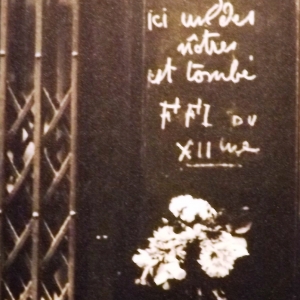 ici un des
nôtres
est tombé
FFI DU
XIIme